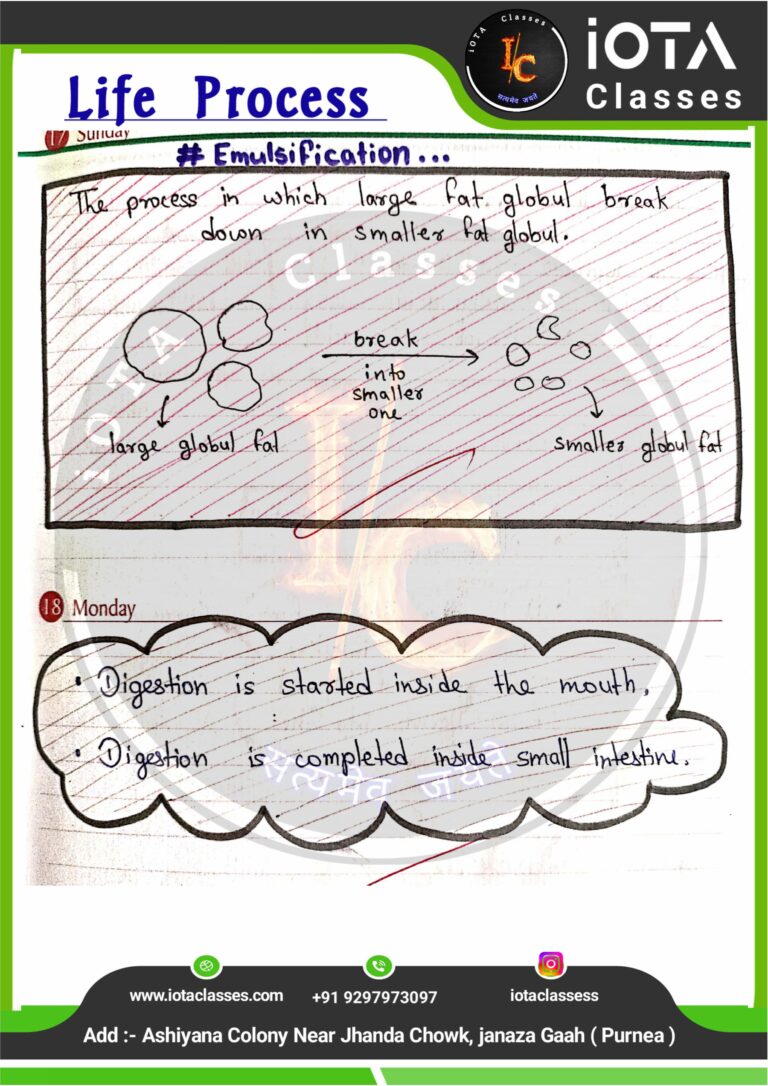 iOTA Classes
I/C
सत्यमेव जयते
iOTA
Classes
Life Process
17 Sunday
# Emulsification...
The process in which large fat globul break
down in smaller fat globul.
iOTA Classes
break
into
smaller
one
large globul fat
smaller globul fat
I/C
18 Monday
• Digestion is started inside the mouth.
• Digestion is completed inside small intestine.
सत्यमेव जयते
www.iotaclasses.com
+91 9297973097
iotaclassess
Add :- Ashiyana Colony Near Jhanda Chowk, janaza Gaah ( Purnea )